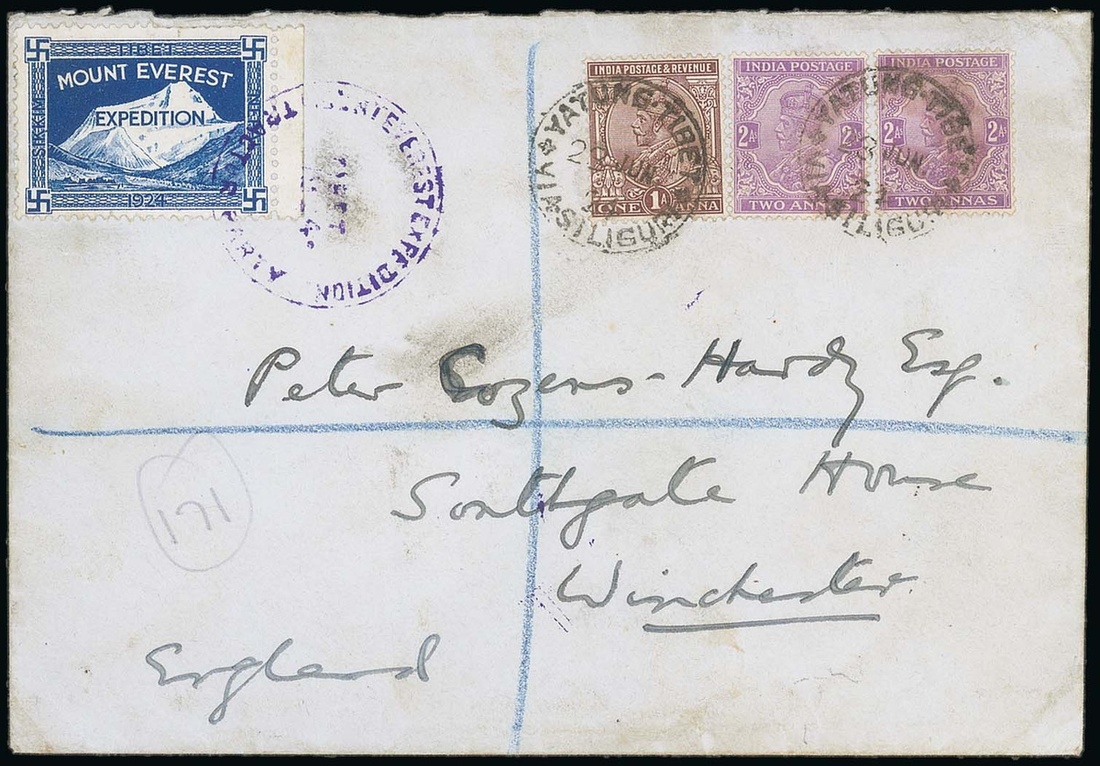 TIBET
MOUNT EVEREST
EXPEDITION
SIKKIM
NEPAL
1924
MT EVEREST EXPEDITION
INDIA POSTAGE & REVENUE
1A
ONE ANNA
INDIA POSTAGE
2As
TWO ANNAS
INDIA POSTAGE
2As 2As
TWO ANNAS
YATUNG-TIBET
VIA SILIGURI
20 JUN
YATUNG-TIBET
VIA SILIGURI
JUN
Peter Cozens-Hardy Esq.
Southgate House
Winchester
England
171